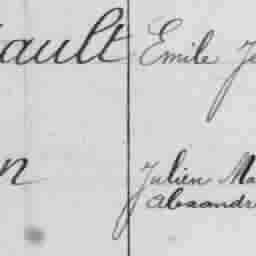 ault Emile Je
n Julien Ma
Alexandre